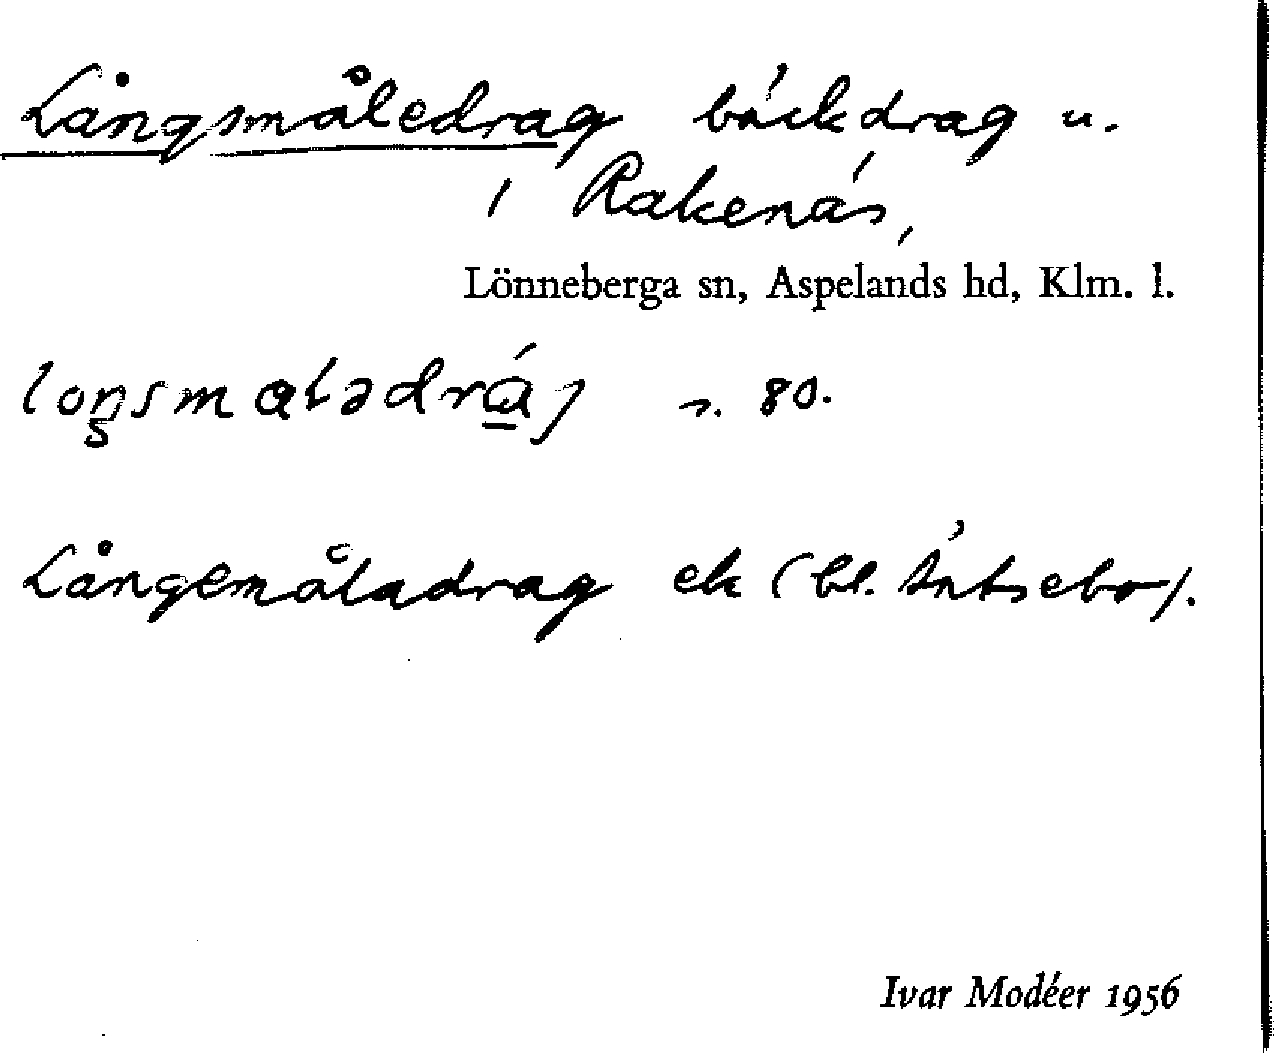 Långsmåledrag bäckdrag u.
i Rakenäs,
Lönneberga sn, Aspelands hd, Klm. l.
n. 80.
Långemåladrag ek (bl.
Ivar Modéer 1956